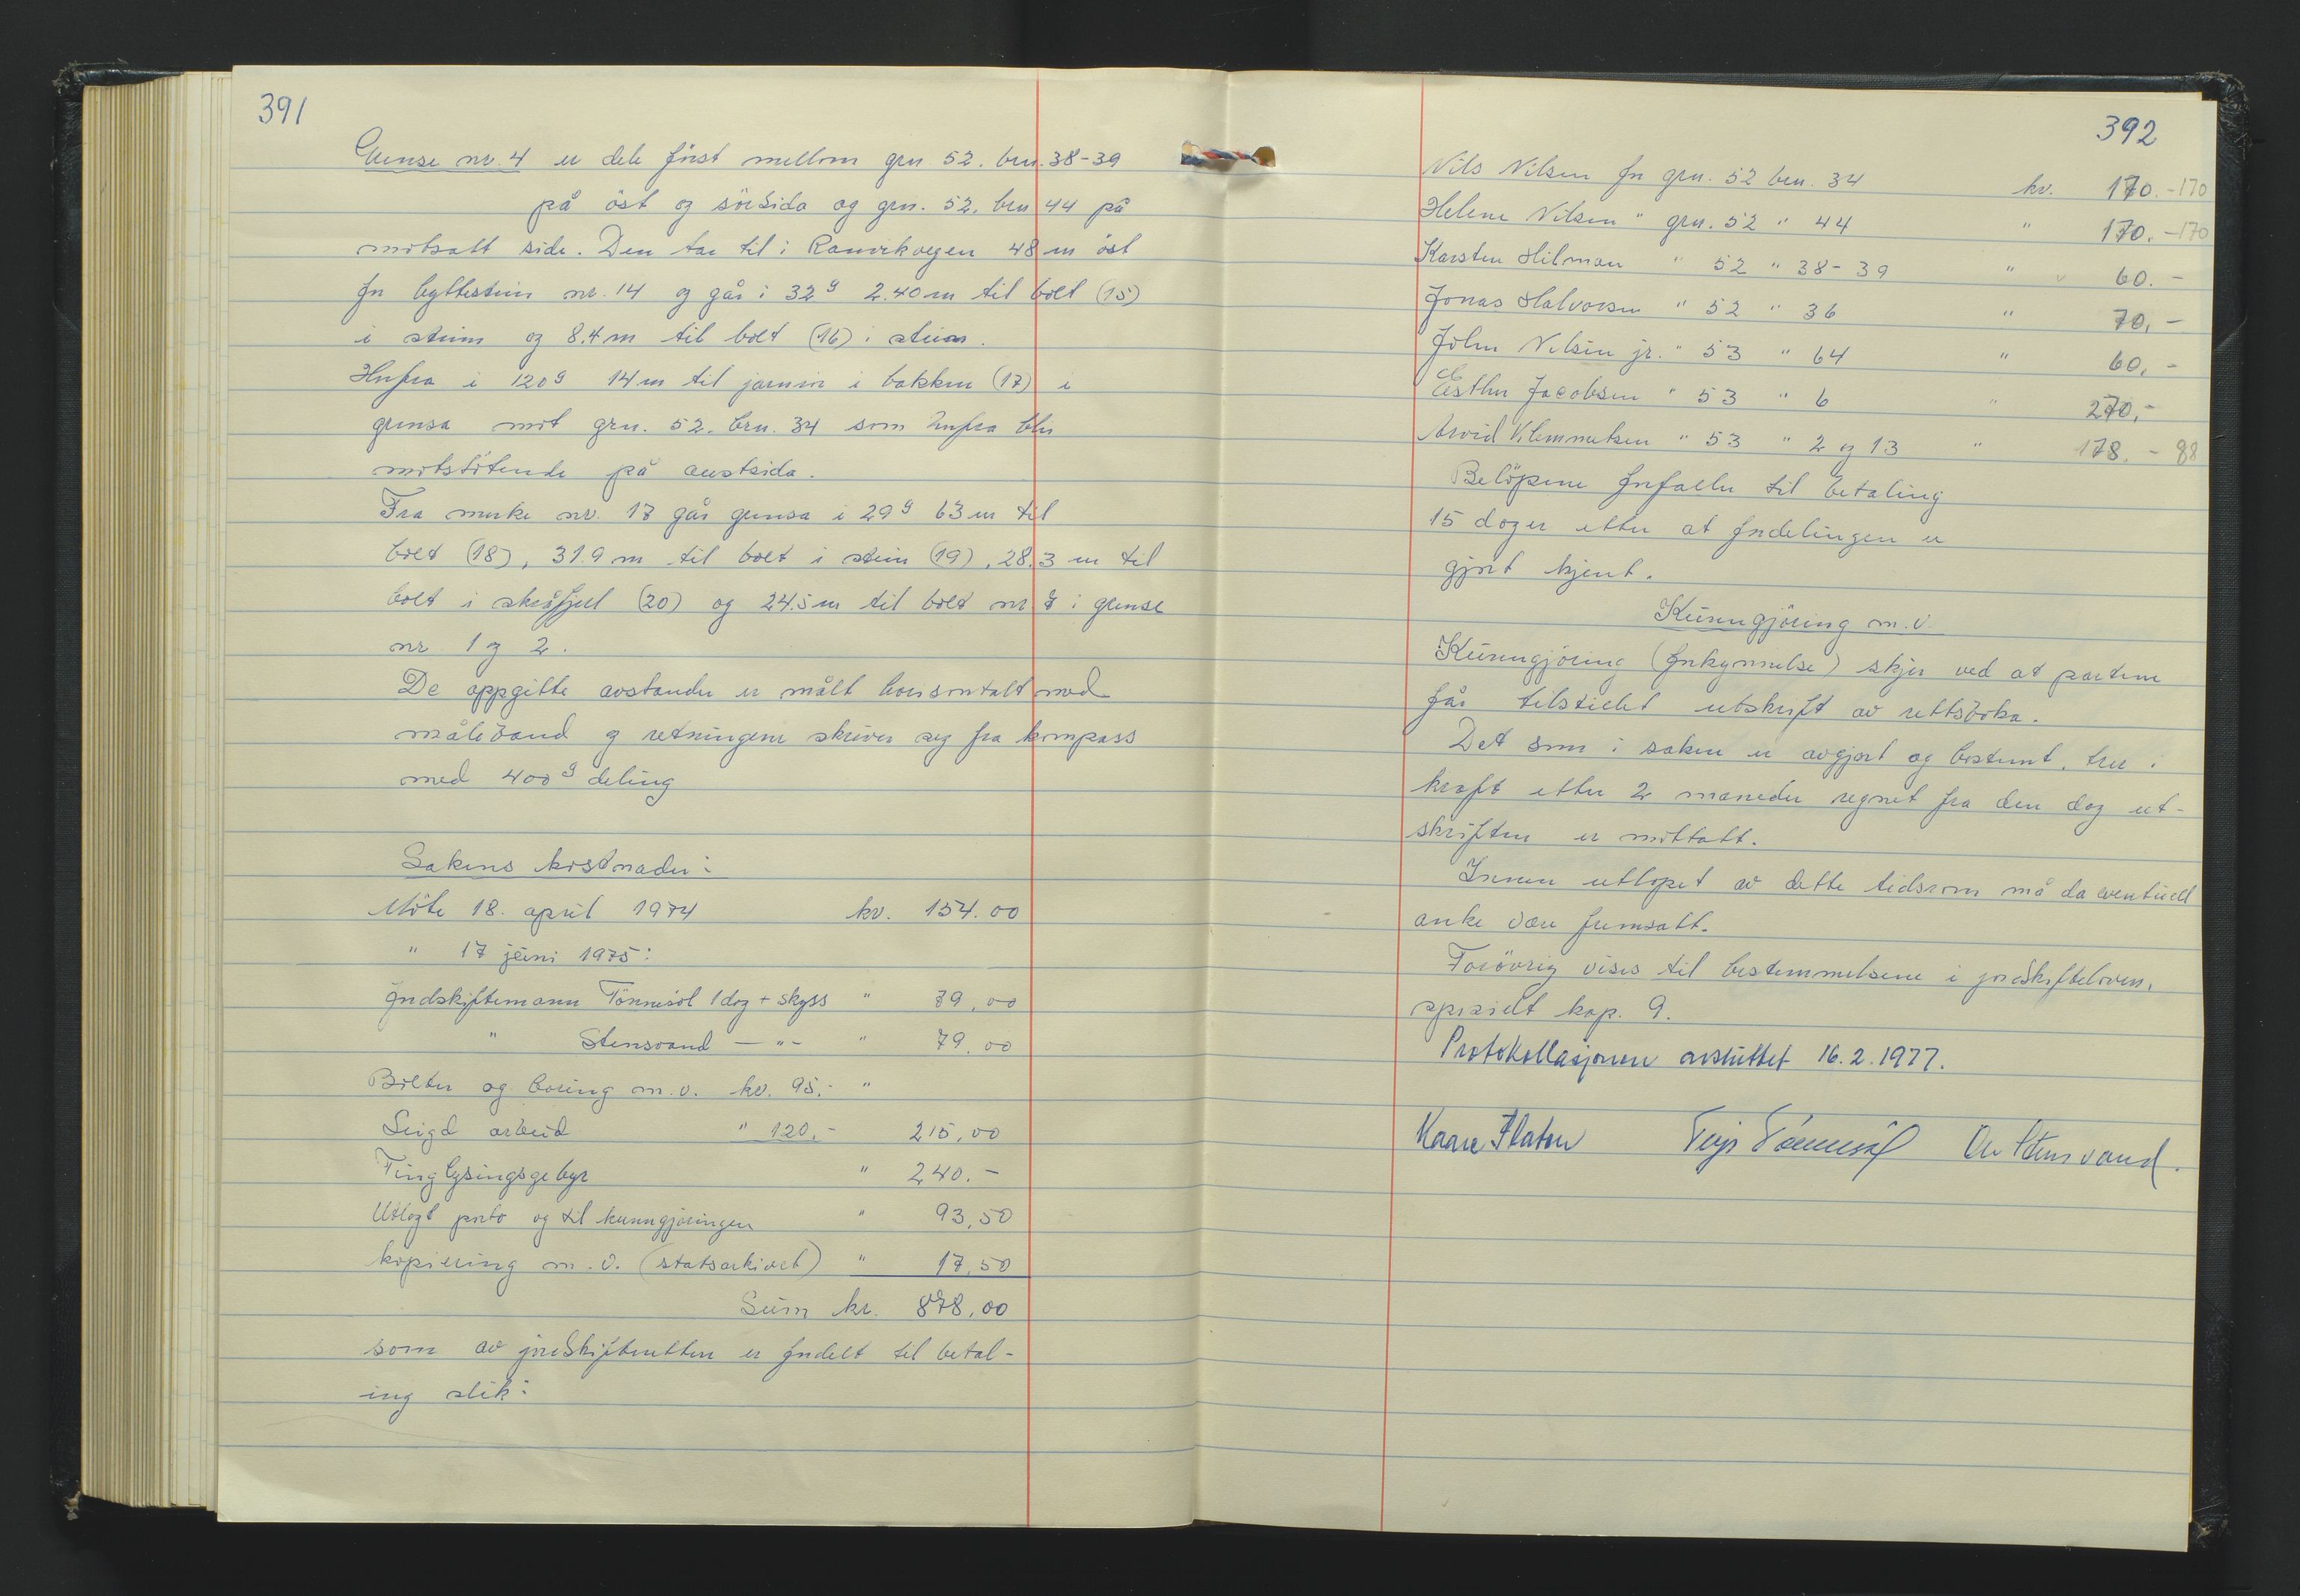 391
Grense nr. 4 er dels först mellom grn 52. brn. 38-39
på öst og sörsida og grn. 52. brn 44 på
motsatt side. Den tar til i Ramvikvegen 48 m öst
for byttestein nr. 14 og går i 32g 2.40 m til bolt (15)
i stein og 8.4 m til bolt (16) i stein.
Herfra i 120g 14 m til jarnrör i bakken (17) i
grensa mot grn. 52. brn. 34 som herfra blir
motstötende på austsida.
Fra merke nr. 17 går grensa i 29g 63 m til
bolt (18), 31.9 m til bolt i stein (19), 28.3 m til
bolt i skråfjell (20) og 24.5 m til bolt nr 7 i grense
nr. 1 og 2.
De oppgitte avstander er målt horisontalt med
målebånd og retningene skriver seg fra kompass
med 400g deling
Sakens kostnader:
Möte 18. april 1974 kr. 154.00
" 17 juni 1975:
Jordskiftemann Tönnesöl 1 dag + skyss " 79,00
" Stensvand — " — " 79.00
Bolter og boring m.v. kr. 95.- "
Leigd arbeid " 120.- 215,00
Tinglysingsgebyr " 240.-
Utlagt porto og til kunngjöringen " 93,50
kopiering m.v. (statsarkivet) " 17,50
Sum kr. 878,00
som av jordskifteretten er fordelt til betal-
ing slik:
392
Nils Nilsen for grn. 52 brn. 34 kr. 170.- 170
Helene Nilsen " grn. 52 " 44 " 170.- 170
Karsten Hilman " 52 " 38-39 " 60.-
Jonas Halvorsen " 52 " 36 " 70,-
John Nilsen jr. " 53 " 64 " 60,-
Esther Jacobsen " 53 " 6 " 270,-
Arvid Klemmetsen " 53 " 2 og 13 " 178.- 88
Belöpene forfaller til betaling
15 dager etter at fordelingen er
gjort kjent.
Kunngjöring m.v.
Kunngjöring (forkynnelse) skjer ved at partene
får tilstillet utskrift av rettsboka.
Det som i saken er avgjort og bestemt, trer i
kraft etter 2 maneder regnet fra den dag ut-
skriften er mottatt.
Innen utlöpet av dette tidsrom må da eventuell
anke være fremsatt.
Forövrig vises til bestemmelsene i jordskifteloven,
spesielt kap. 9.
Protokollasjonen avsluttet 16.2.1977.
Kaare Flaten Terje Tönnesöl Stensvand.